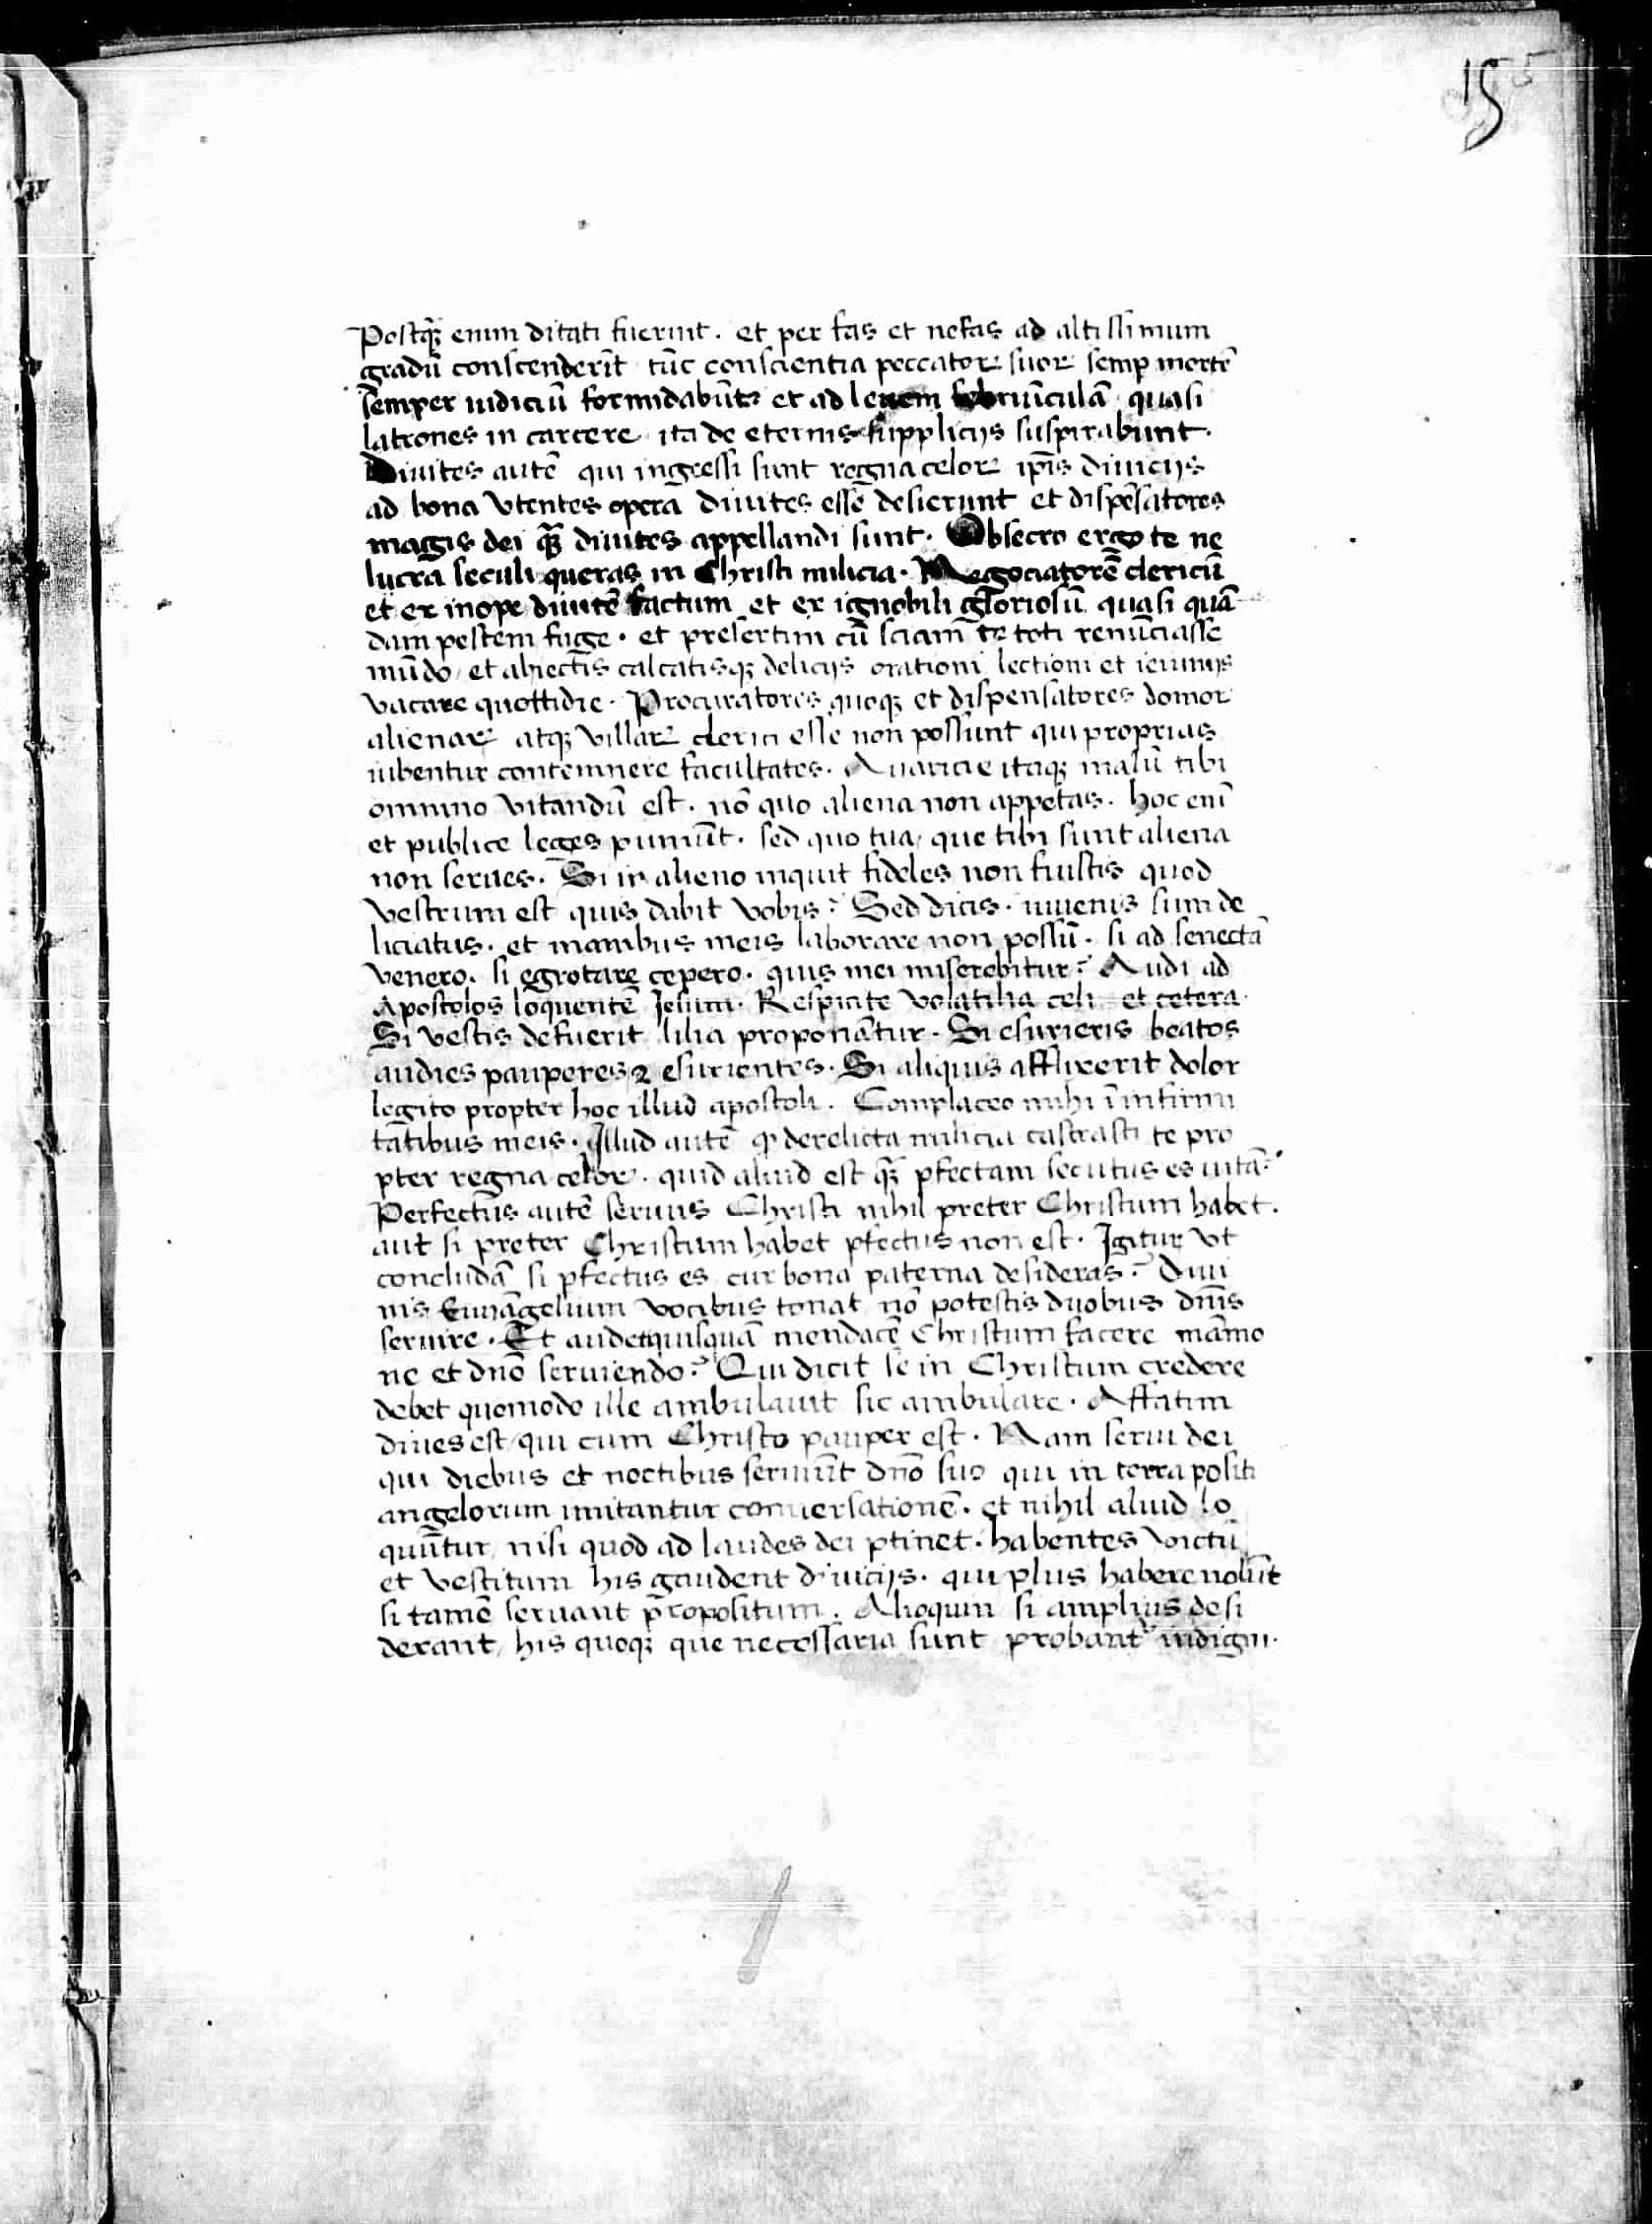 155
Postq̃ꝫ enim ditati fuerint. et per fas et nefas ad altissimum
gradū conscenderīt tūc conscientia peccatoꝝ suoꝝ semꝑ mortē
semper iudiciū formidabūtꝰ et ad leuem febriūculā quasi
latrones in carcere ita de eternis suppliciis suspirabunt.
Diuites autē qui ingressi sunt regna celoꝝ ip̄is diuiciis
ad bona vtentes opera diuites esse desierunt et dispēsatores
magis dei q̃ꝫ diuites appellandi sunt. Obsecro ergo te ne
lucra seculi queras in Christi milicia. Negociatorē clericū
et ex inope diuitē factum et ex ignobili gloriosū quasi quā
dam pestem fuge. et presertim cū sciam te toti renūciasse
mūdo, et abiectis calcatisqꝫ deliciis orationi lectioni et ieiuniis
vacare quottidie. Procuratores quoqꝫ et dispensatores domoꝝ
alienaꝝ atqꝫ villaꝝ clerici esse non possunt qui proprias
iubentur contemnere facultates. Auaricie itaqꝫ malū tibi
omnino vitandū est. nō quo aliena non appetas. hoc enī
et publice leges puniūt. sed quo tua, que tibi sunt aliena
non serues. Si in alieno inquit fideles non fuistis quod
vestrum est quis dabit vobis? Sed dicis. iuuenis sum de
liciatus. et manibus meis laborare non possū. si ad senectā
venero. si egrotare cepero. quis mei miserebitur? Audi ad
Apostolos loquentē Jesum. Respicite volatilia celi et cetera.
Si vestis defuerit lilia proponātur. Si esurieris beatos
audies pauperes ⁊ esurientes. Si aliquis afflixerit dolor
legito propter hoc illud apostoli. Complaceo mihi ī infirmi
tatibus meis. Illud autē ꝙ derelicta milicia castrasti te pro
pter regna celoꝝ. quid aliud est q̃ꝫ ꝑfectam secutus es uitā?
Perfectus autē seruus Christi nihil preter Christum habet.
aut si preter Christum habet ꝑfectus non est. Igitur vt
concludā si ꝑfectus es cur bona paterna desideras? Diui
nis Euuāgelium vocibus tonat nō potestis duobus dn̄is
seruire. Et audet quisquā mendacē Christum facere māmo
ne et dn̄o seruiendo? Qui dicit se in Christum credere
debet quomodo ille ambulauit sic ambulare. Affatim
diues est, qui cum Christo pauper est. Nam serui dei
qui diebus et noctibus seruiūt dn̄o suo qui in terra positi
angelorum imitantur conuersationē. et nihil aliud lo
quūtur, nisi quod ad laudes dei ꝑtinet. habentes victū
et vestitum his gaudent diuiciis. qui plus habere nolūt
si tamē seruant propositum. Alioquin si amplius desi
derant, his quoqꝫ que necessaria sunt probantꝰ indigni.